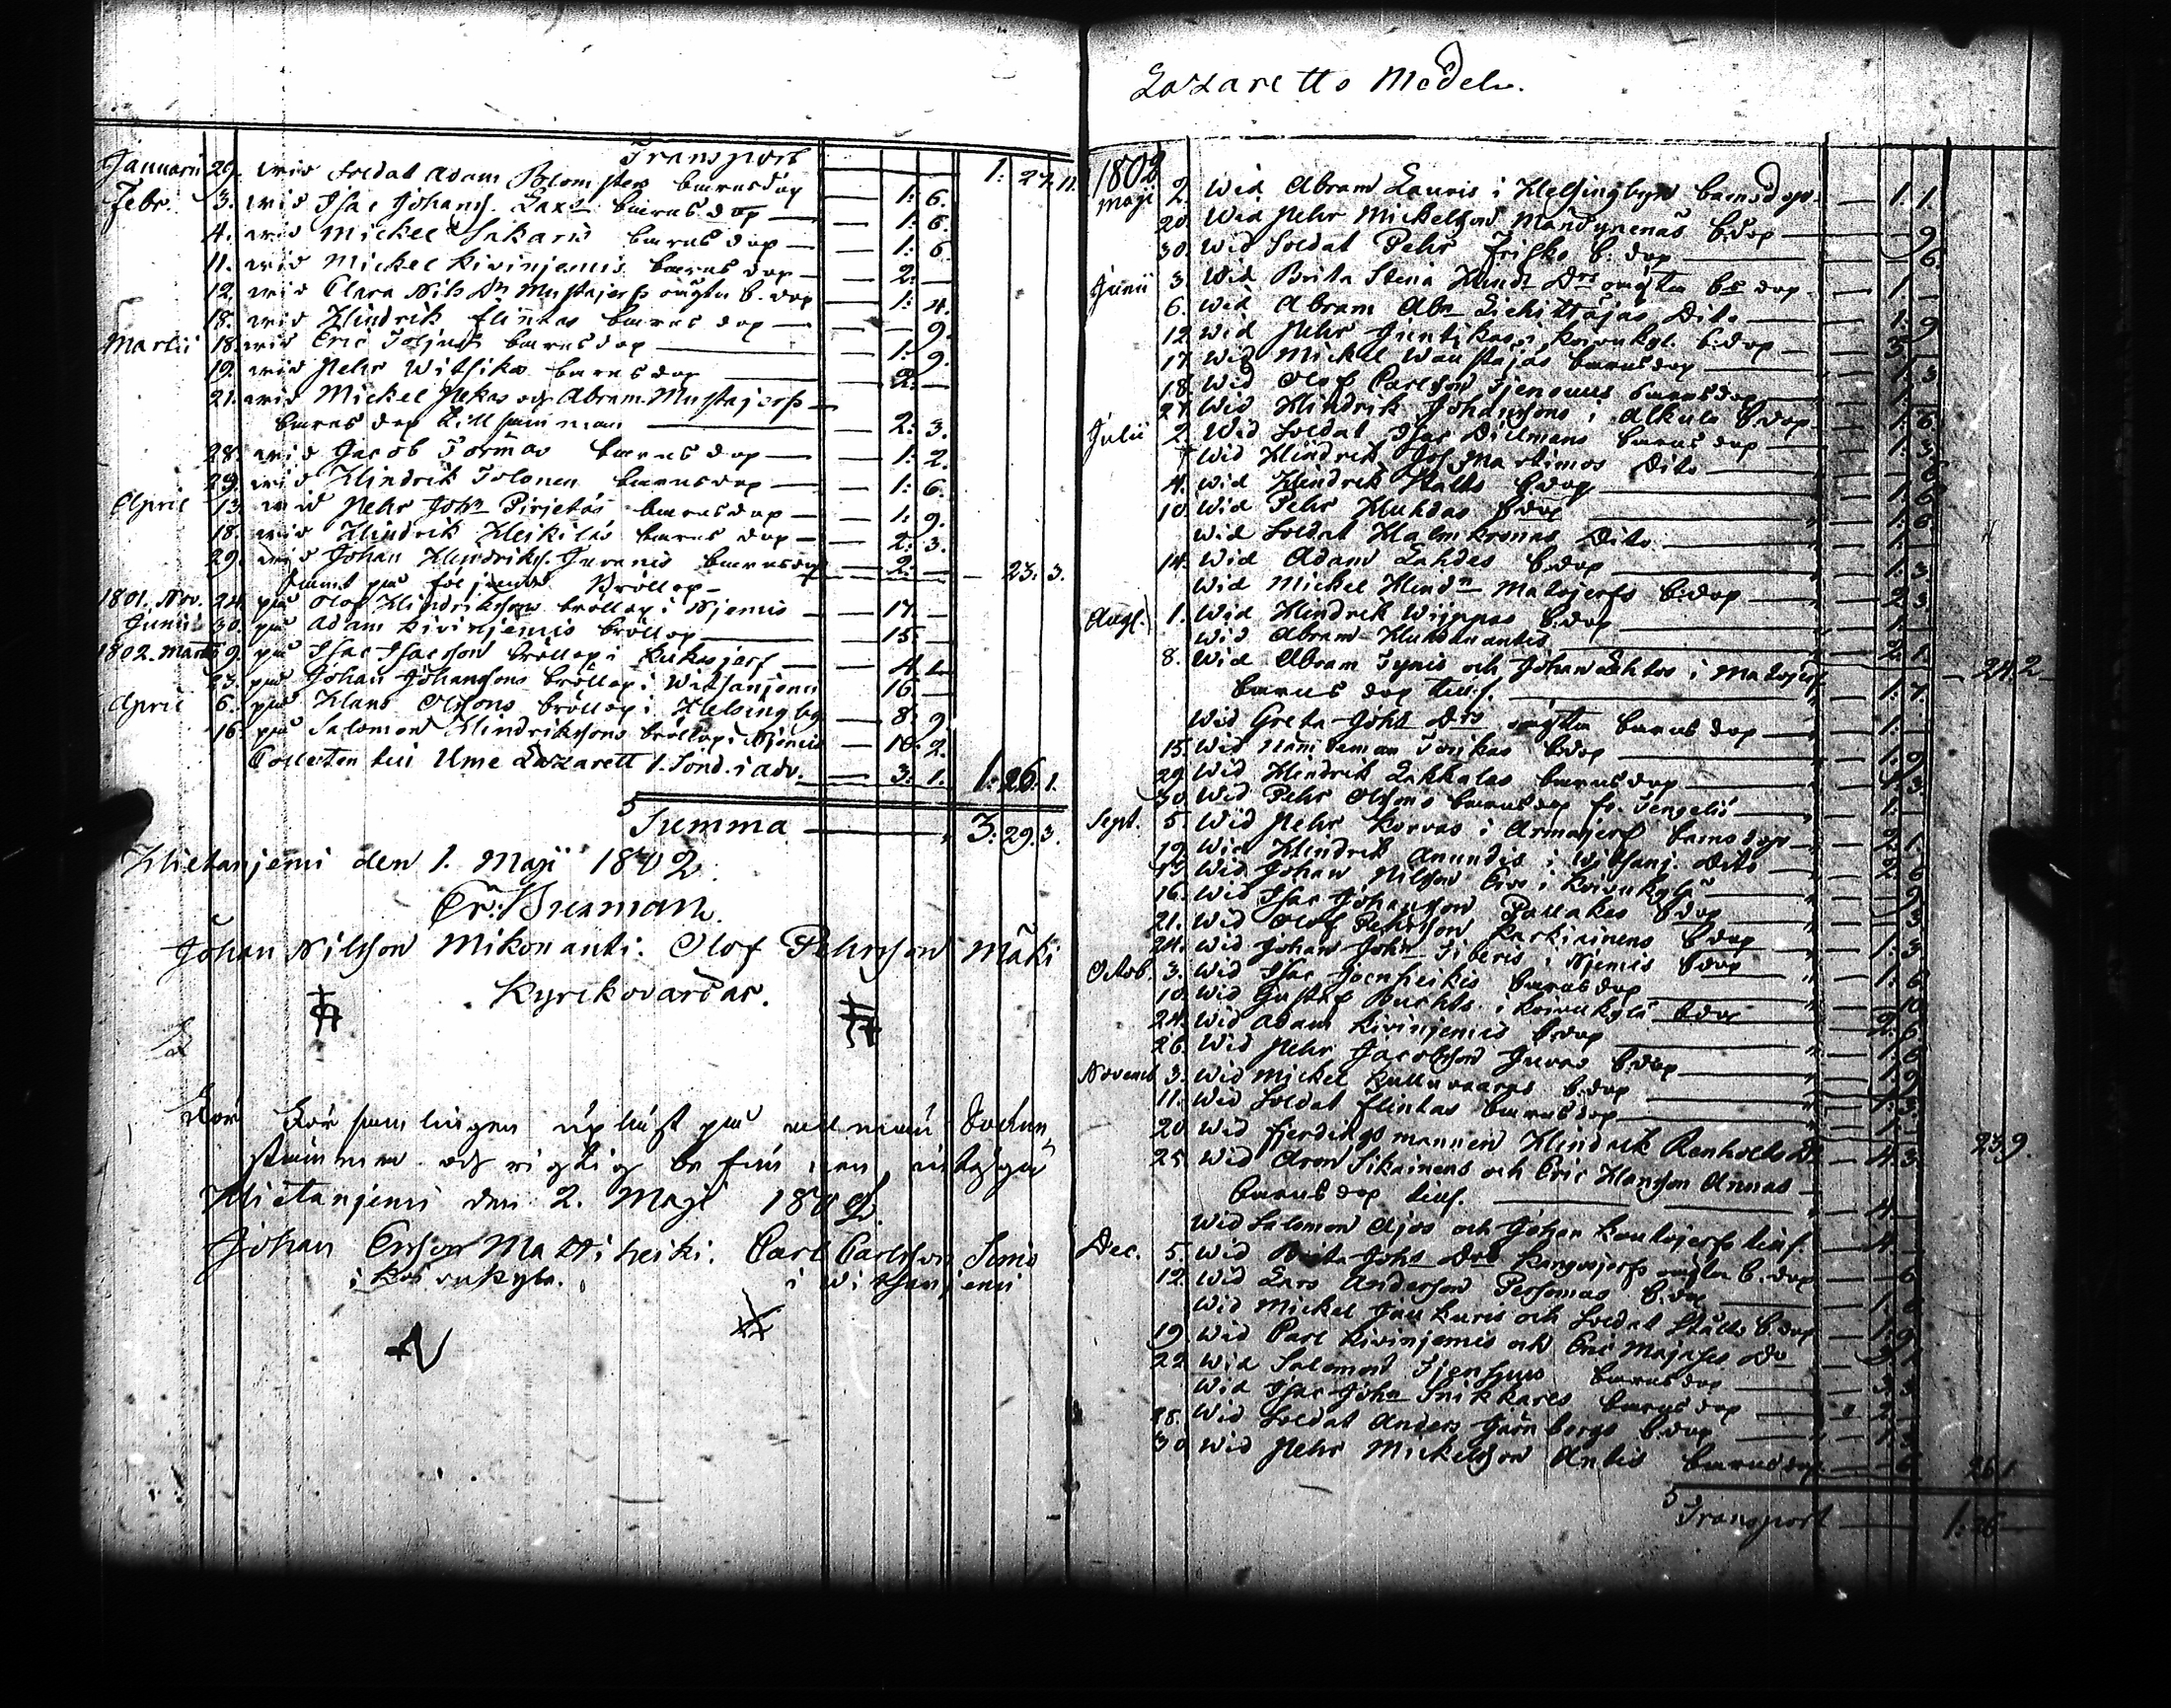 Transport 1: 27. 11.
Januarii 29. wid Soldat Adam Blomsters barnsdop — 1: 6.
Febr. 3. wid Isac Johans. Lax barnsdop — 1: 6.
4. wid Mickel barnsdop — 1: 6
11. wid Mickel Kivinjemis barnsdop — 2: —
12. wid Clara Nils Dr Mustajerfs oägta b. dop 1: 4.
18. wid Hindrik Flintas barnsdop — 9.
Martii 18. wid Eric barnsdop — 1: 9.
19. wid Pehr Witsika barnsdop — 2: —
21. wid Mickel Pekas och Abram Mustajerfs
barnsdop tillsamman — 2: 3.
28. wid Jacob Tormas barnsdop — 1: 2.
29. wid Hindrik Tolonen barnsdop — 1: 6.
April 13. wid Pehr Johan Pirjetäs barnsdop — 1: 9.
18. wid Hindrik Heikiläs barnsdop — 2: 3.
29. wid Johan Hindriks. Juvanis barnsdop — 2: — 23: 3.
Samt på följande Bröllop —
1801. Nov. 24. på Olof Hindriksons bröllop i Njemis — 17. —
Junii 30. på Adam Kivinjemis bröllop — 15. —
1802. Martii 9. på Isac Isacsons bröllop i Kukasjerf — 4. —
23. på Johan Johansons bröllop i Witsanjemi 16. —
April 6. på Hans Olssons bröllop i Helsingby — 8: 9
16. på Salomon Hindriksons bröllop i Njemis — 10. 2.
Collecten till Ume Lazarett 1. Sönd. i Adv. — 3: 1. 1: 26. 1.
Summa — 3: 29. 3.
Hietanjemi den 1. Maji 1802.
Er. Burman.
Johan Nilsson Mikonanti. Olof Pehrsson Mäki
Kyrkovärdar.
För Församlingen upläst på allmän Sockne
stämman och rigtig befunnen, intyga
Hietanjemi den 2. Maji 1802.
Johan Ersson Mattiheiki. Carl Carlsson Simo
i Koivukylä. i Witsanjemi
Lazaretts Medel.
1802
Maji 2. Wid Abram Lauris i Helsingbyn barnsdop — 1. 1.
20. Wid Pehr Mickelson Mandynenäs b.dop — 9
30. Wid Soldat Pehr Frisks b. dop — 6.
Junii 3. Wid Brita Stina Hind. Drs oägta bs dop — 1 —
6. Wid Abram Abr. Dito — 1: 9
12. Wid Pehr i Koivukyl. b.dop — 3
17. Wid Mickel barnsdop — 1. 3
18. Wid Olof Carlson barnsdop — 1: —
27. Wid Hindrik Johansons i Alkula b.dop — 1: 6.
Julii 2. Wid Soldat Isac Dillmans barnsdop — 1: 3.
Wid Hindrik Martimos Dito — 6
4. Wid Hindrik Stålts b.dop — 1: 6
10. Wid Pehr Huhtas b.dop — 1: 6.
Wid Soldat Malmkronas Dito — 1: —
14. Wid Adam Lahdes b.dop — 1: 3.
Wid Mickel Hindr. Matojerfs b.dop — 2 3.
Aug. 1. Wid Hindrik Wijppas b.dop — 1 —
Wid Abram — 2. 1. 24. 2
8. Wid Abram Tynis och Johan Lehtos i Matojerf
barnsdop tills. — 1: 7.
Wid Greta Joha. Drs oägta barnsdop — 1: —
15. Wid b.dop — 1: 9
29. Wid Hindrik Lakkalas barnsdop — 1: 3.
30. Wid Pehr Olssons barnsdop fr. Tengeliö — 1: —
Sept. 5. Wid Pehr Korvas i Armasjerf barnsdop — 2. 1.
12. Wid Hindrik Anundis i Witsanj. Dito — 2. 6
Wid Johan Nilsson i Koivukylä — 9
16. Wid Isac Johanson Pallakas b.dop — 3.
21. Wid Olof Pehrsson Karkiainens b.dop — 1: 3.
24. Wid Johan Johan Siberis i Njemis b.dop
Octob. 3. Wid Isac barnsdop — 1: 6.
10. Wid Gustaf Buchts i Koivukylä b.dop — 10
24. Wid Adam Kivinjemis b.dop — 2. 6
26. Wid Pehr Jacobsson Juvas b.dop — 1: 6
Novemb 3. Wid Mickel Kulluvaaras b.dop — 1: 9
11. Wid Soldat Flintas barnsdop — 1: 3.
20. Wid Fjerdingsmannen Hindrik D. — 4 3. 23 9.
25. Wid Aron Sikainens och Eric Hansson Annas
barnsdop tills. — 4 —
Wid Salomon Ajos och Johan Kaulojerfs tills. — 4 —
Dec. 5. Wid Brita Johs Drs Kangosjerfs oägta b.dop — 6
12. Wid Lars Anderson b.dop — 1. 6
Wid Mickel Jaukuris och Soldat Stålts b.dop — 1: 9
19. Wid Carl Kivinjemis och Eric
22. Wid Salomon barnsdop — 3
Wid Isac Joha Snikkares barnsdop — 2
28. Wid Soldat Anders b.dop — 1. 3
30. Wid Pehr Mickelson Antis barnsdop — 6 26. 1.
Transport — 1: 26 —